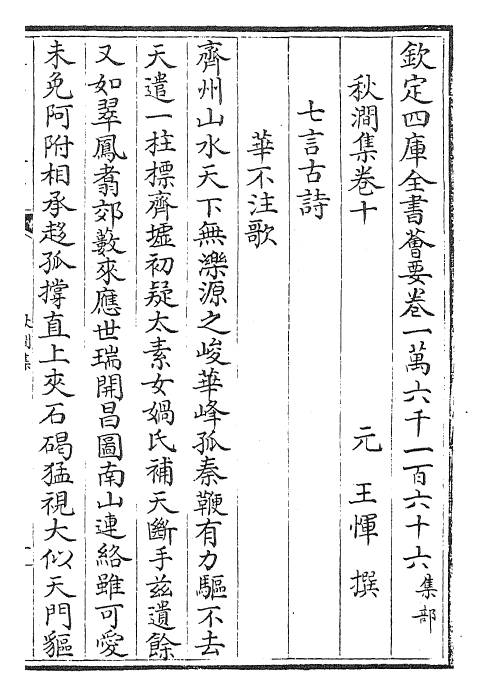 欽定四庫全書薈要卷一萬六千一百六十六集部
秋澗集卷十　元　王惲　撰
七言古詩
華不注歌
齊州山水天下無濼源之峻華峰孤秦鞭有力驅不去
天遣一柱標齊墟初疑太素女媧氏補天斷手兹遺餘
又如翠鳳翥郊藪來應世瑞開昌圖南山連絡雖可愛
未免阿附相承趍孤撐直上夾石碣猛視大似天門貙